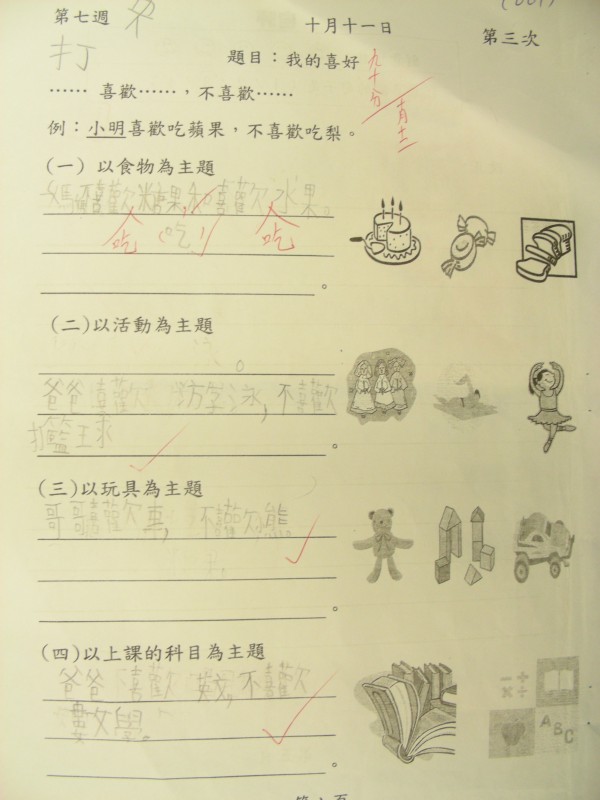 第七週
十月十一日
第三次
打
題目：我的喜好
九十分
…… 喜歡……，不喜歡……
例：小明喜歡吃蘋果，不喜歡吃梨。
(一) 以食物為主題
媽媽喜歡糖果,和喜歡水果。
吃 (吃) 吃
。
(二)以活動為主題
爸爸喜歡 游泳,不喜歡
打籃王求 。
(三)以玩具為主題
哥哥喜歡車, 不喜歡熊
。
(四)以上課的科目為主題
爸爸 喜歡 英文,不喜歡
數文學。
。
ABC